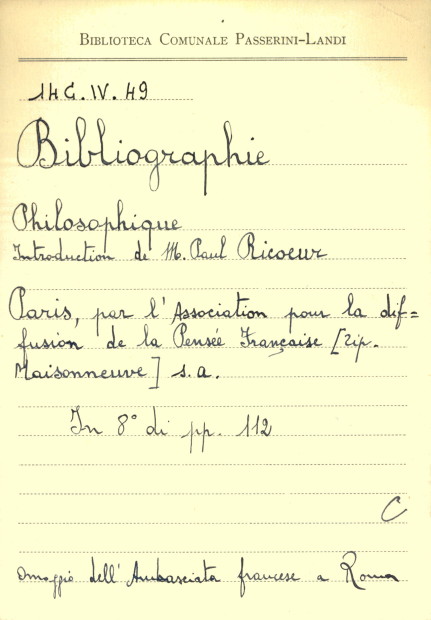 BIBLIOTECA COMUNALE PASSERINI-LANDI
14 C. IV. 49
Bibliographie
Philosophique
Introduction de M. Paul Ricoeur
Paris, par l'Association pour la dif=
fusion de la Pensée Française [tip.
Maisonneuve] s. a.
In 8° di pp. 112
C
Omaggio dell'Ambasciata francese a Roma